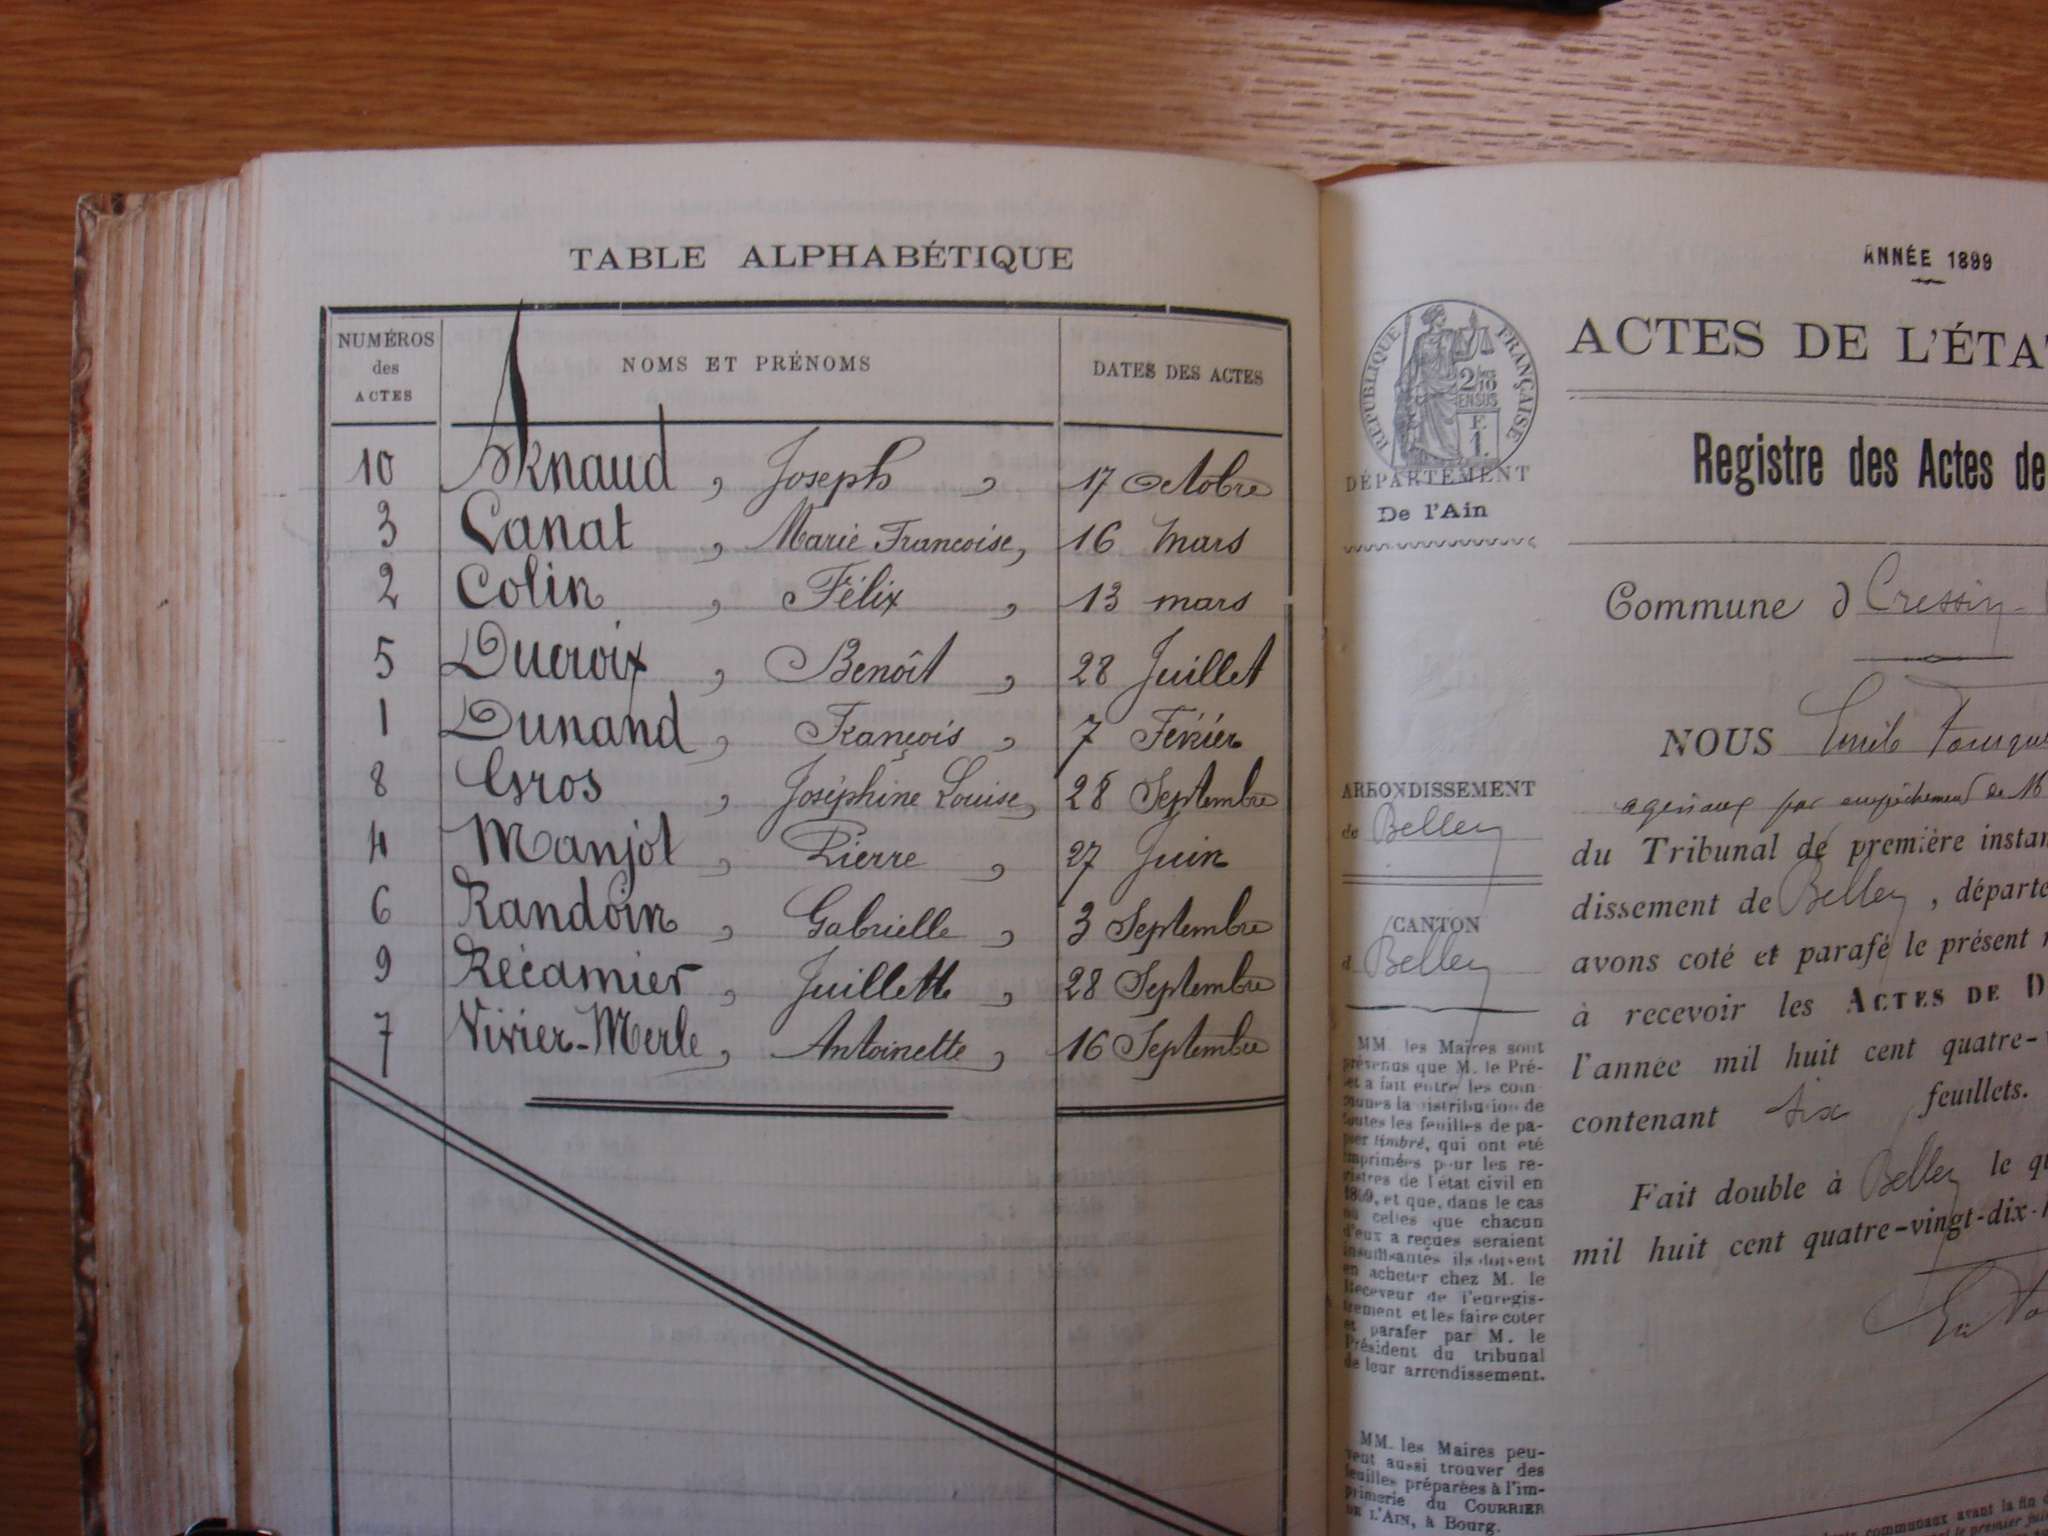 TABLE ALPHABÉTIQUE
NUMÉROS des ACTES NOMS ET PRÉNOMS DATES DES ACTES
10 Arnaud, Joseph, 17 Octobre
3 Canat, Marie Francoise, 16 mars
2 Colin, Félix, 13 mars
5 Ducroix, Benoît, 28 Juillet
1 Dunand, François, 7 Février
8 Gros, Joséphine Louise, 28 Septembre
4 Manjot, Pierre, 27 Juin
6 Randoin, Gabrielle, 3 Septembre
9 Récamier, Juillette, 28 Septembre
7 Vivier-Merle, Antoinette, 16 Septembre
ANNÉE 1899
ACTES DE L'ÉTA
RÉPUBLIQUE FRANÇAISE
2/10 EN SUS
E
1
Registre des Actes de
DÉPARTEMENT
De l'Ain
Commune d Cressin-
NOUS Emile
ARRONDISSEMENT
de Belley
par empêchement de M
du Tribunal de première instan
CANTON
d Belley
dissement de Belley, départe
avons coté et parafé le présent r
à recevoir les ACTES DE D
l'année mil huit cent quatre-v
contenant six feuillets.
Fait double à Belley le qu
mil huit cent quatre-vingt-dix-h
MM. les Maires sont
prévenus que M. le Pré-
fet a fait entre les com-
munes la distribution de
toutes les feuilles de pa-
pier timbré, qui ont été
imprimées pour les re-
gistres de l'état civil en
1899, et que, dans le cas
où celles que chacun
d'eux a reçues seraient
insuffisantes ils doivent
en acheter chez M. le
Receveur de l'enregis-
trement et les faire coter
et parafer par M. le
Président du tribunal
de leur arrondissement.
MM. les Maires peu-
vent aussi trouver des
feuilles préparées à l'im-
primerie du COURRIER
DE L'AIN, à Bourg.
communaux avant la fin d